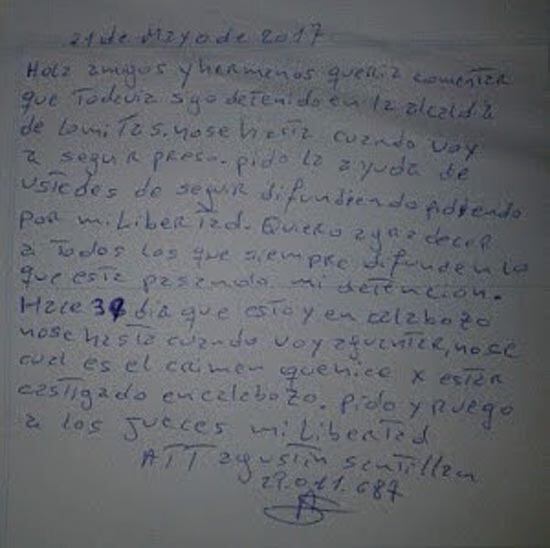 21 de Mayo de 2017
Hola amigos y hermenos queria comentar
que Todavia sigo detenido en la alcaldia
de lomitas. nose hasta cuando voy
a seguir preso. pido la ayuda de
ustedes de seguir difundiendo pidiendo
por mi Libertad. Quiero agradecer
a Todos los que siempre difunden lo
que esta pasando mi detención.
Hace dia que estoy en calabozo
nose hasta cuando voy aguentar, nose
cual es el crimen que hice x estar
castigado en calabozo. pido y ruego
a los jueces mi Libertad
ATT agustin santillan
29.011.687